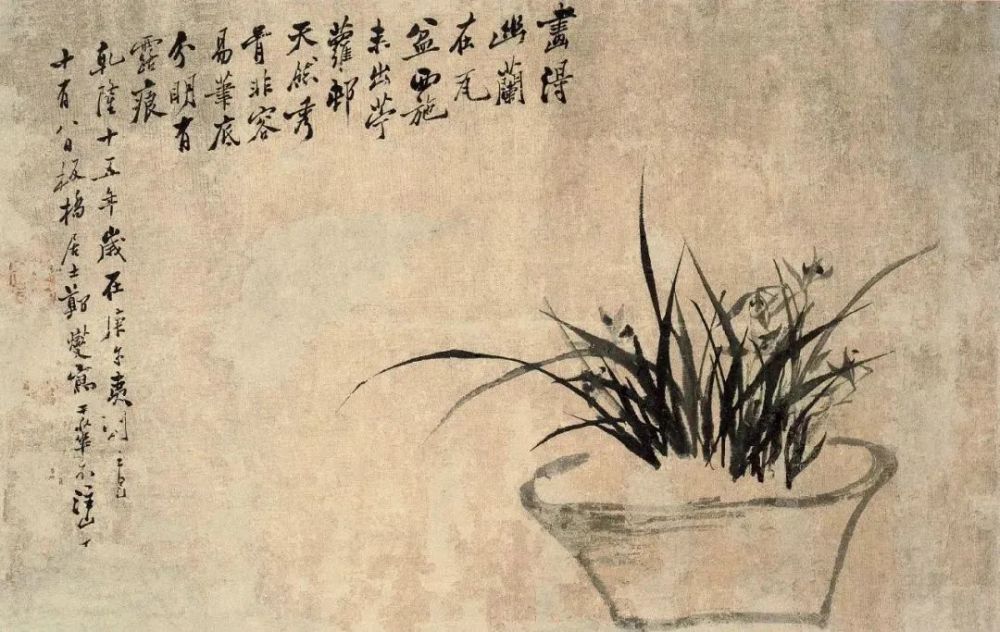 畫得
幽蘭
在瓦
盆西施
未出苧
蘿邨
天然秀
骨非容
易筆底
分明有
露痕
乾隆十五年歲在庚午夷則
十有八日板橋居士鄭燮寫于